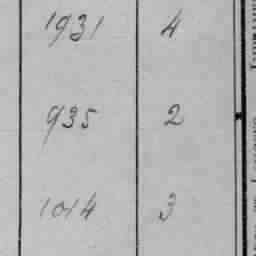 1931 4
935 2
1014 3